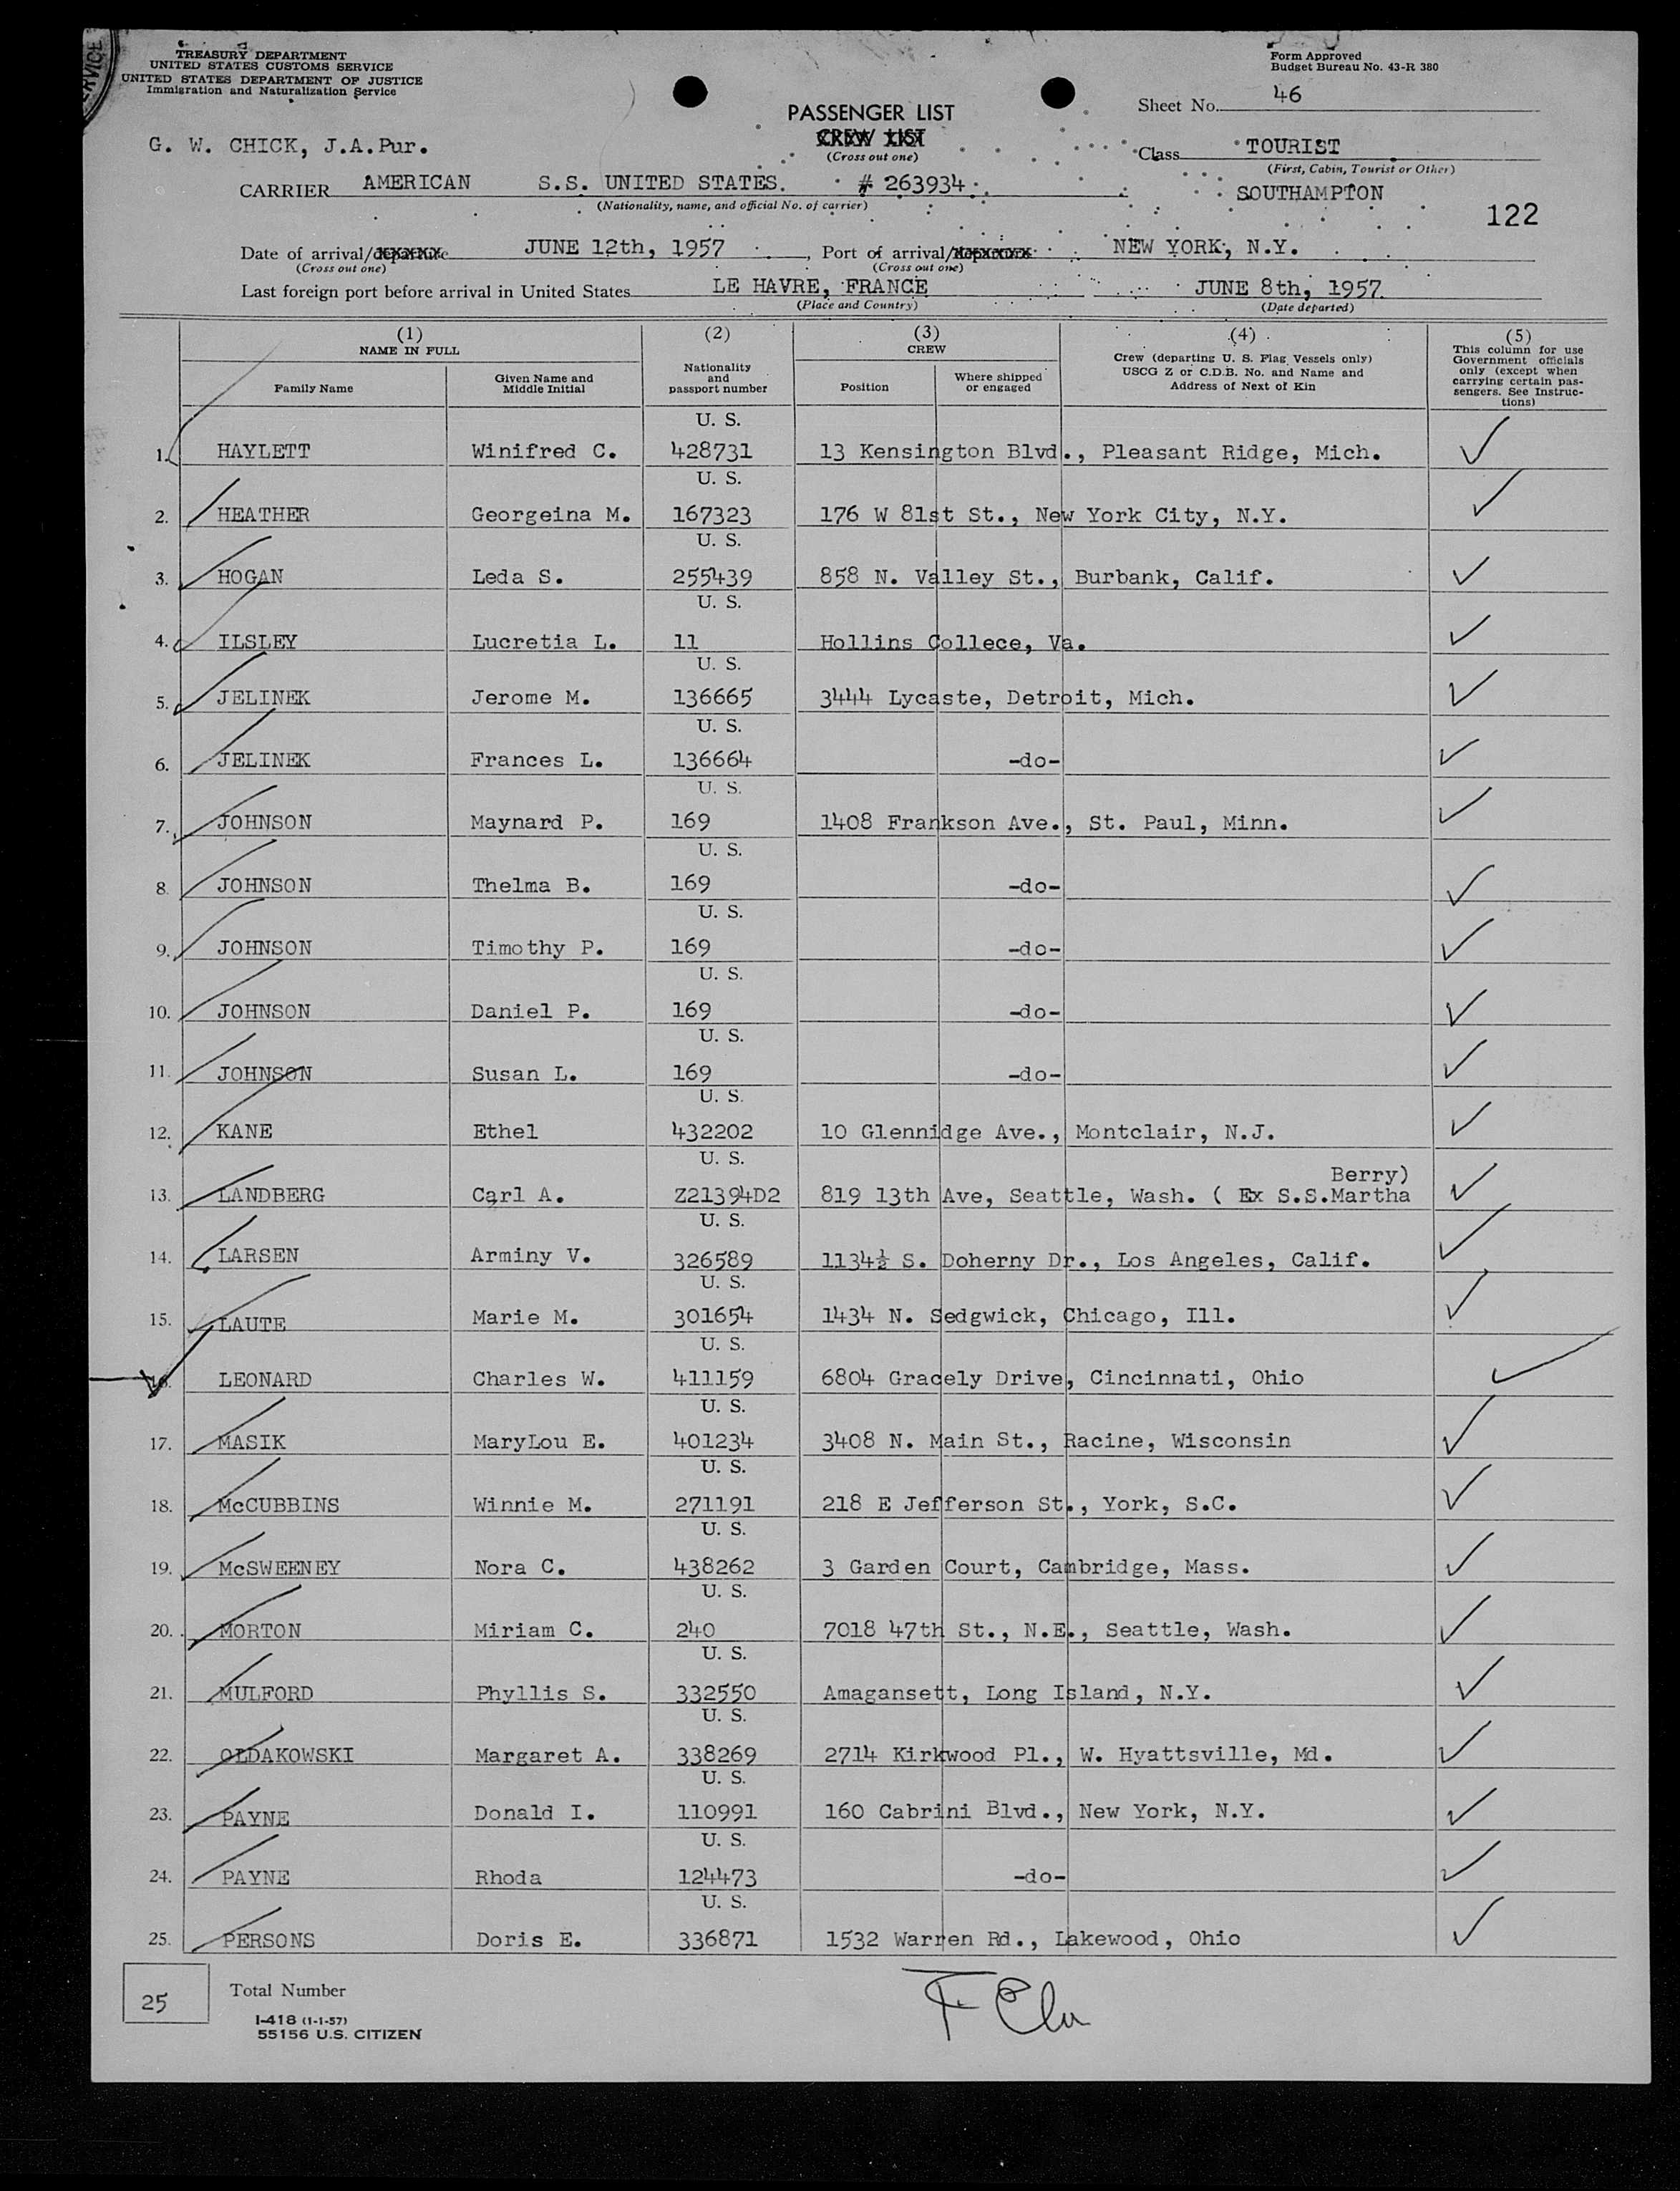 ERVICE
TREASURY DEPARTMENT
UNITED STATES CUSTOMS SERVICE
UNITED STATES DEPARTMENT OF JUSTICE
Immigration and Naturalization Service
Form Approved
Budget Bureau No. 43-R 380
PASSENGER LIST
CREW LIST
(Cross out one)
Sheet No. 46
G. W. CHICK, J.A.Pur.
Class TOURIST
(First, Cabin, Tourist or Other)
CARRIER AMERICAN S.S. UNITED STATES. # 263934
(Nationality, name, and official No. of carrier)
SOUTHAMPTON
122
Date of arrival/departure JUNE 12th, 1957, Port of arrival/ NEW YORK, N.Y.
(Cross out one) (Cross out one)
Last foreign port before arrival in United States LE HAVRE, FRANCE JUNE 8th, 1957.
(Place and Country) (Date departed)
(1) (2) (3) (4) (5)
NAME IN FULL
Family Name
Given Name and Middle Initial
Nationality and passport number
CREW
Position
Where shipped or engaged
Crew (departing U. S. Flag Vessels only)
USCG Z or C.D.B. No. and Name and
Address of Next of Kin
This column for use
Government officials
only (except when
carrying certain pas-
sengers. See Instruc-
tions)
U. S.
1. HAYLETT Winifred C. 428731 13 Kensington Blvd., Pleasant Ridge, Mich.
U. S.
2. HEATHER Georgeina M. 167323 176 W 81st St., New York City, N.Y.
U. S.
3. HOGAN Leda S. 255439 858 N. Valley St., Burbank, Calif.
U. S.
4. ILSLEY Lucretia L. 11 Hollins Collece, Va.
U. S.
5. JELINEK Jerome M. 136665 3444 Lycaste, Detroit, Mich.
U. S.
6. JELINEK Frances L. 136664 -do-
U. S.
7. JOHNSON Maynard P. 169 1408 Frankson Ave., St. Paul, Minn.
U. S.
8. JOHNSON Thelma B. 169 -do-
U. S.
9. JOHNSON Timothy P. 169 -do-
U. S.
10. JOHNSON Daniel P. 169 -do-
U. S.
11. JOHNSON Susan L. 169 -do-
U. S.
12. KANE Ethel 432202 10 Glennidge Ave., Montclair, N.J.
U. S.
Berry)
13. LANDBERG Carl A. Z21394D2 819 13th Ave, Seattle, Wash. ( Ex S.S.Martha
U. S.
14. LARSEN Arminy V. 326589 1134½ S. Doherny Dr., Los Angeles, Calif.
U. S.
15. LAUTE Marie M. 301654 1434 N. Sedgwick, Chicago, Ill.
U. S.
16. LEONARD Charles W. 411159 6804 Gracely Drive, Cincinnati, Ohio
U. S.
17. MASIK MaryLou E. 401234 3408 N. Main St., Racine, Wisconsin
U. S.
18. McCUBBINS Winnie M. 271191 218 E Jefferson St., York, S.C.
U. S.
19. McSWEENEY Nora C. 438262 3 Garden Court, Cambridge, Mass.
U. S.
20. MORTON Miriam C. 240 7018 47th St., N.E., Seattle, Wash.
U. S.
21. MULFORD Phyllis S. 332550 Amagansett, Long Island, N.Y.
U. S.
22. OLDAKOWSKI Margaret A. 338269 2714 Kirkwood Pl., W. Hyattsville, Md.
U. S.
23. PAYNE Donald I. 110991 160 Cabrini Blvd., New York, N.Y.
U. S.
24. PAYNE Rhoda 124473 -do-
U. S.
25. PERSONS Doris E. 336871 1532 Warren Rd., Lakewood, Ohio
25 Total Number
I-418 (1-1-57)
55156 U.S. CITIZEN